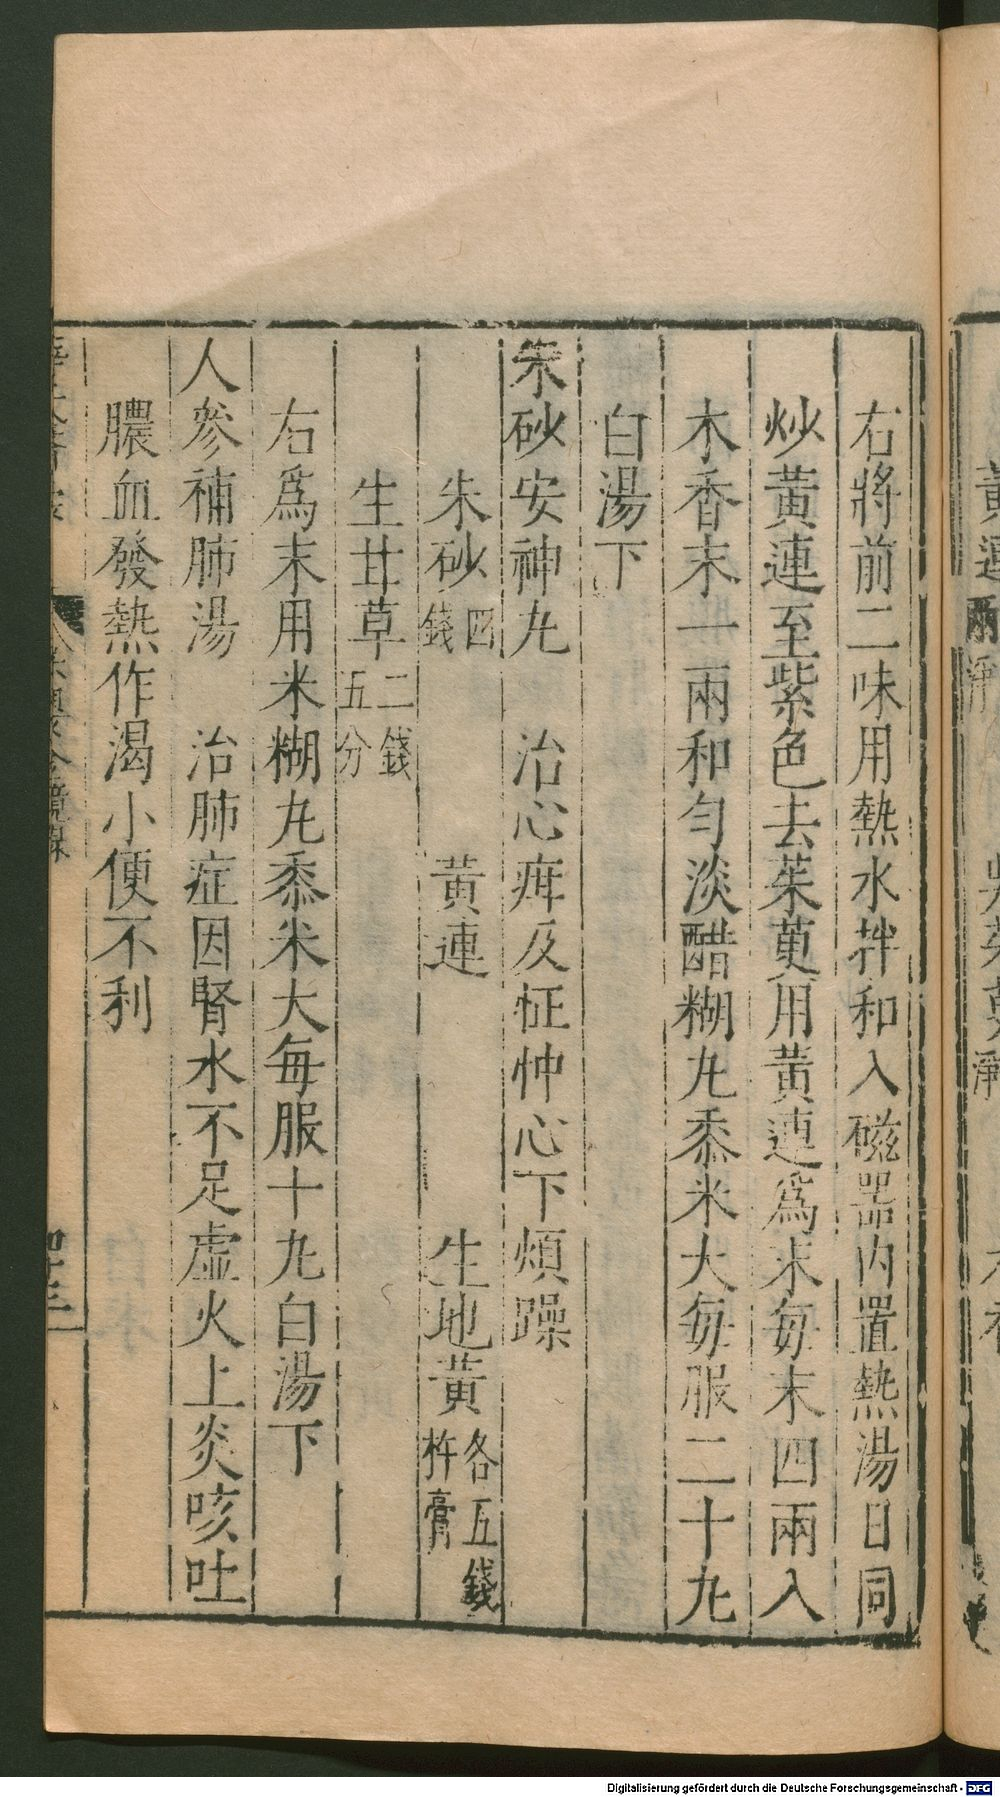 右將前二味用熱水拌和入磁器内置熱湯日同
炒黃連至紫色去茱萸用黃連爲末每末四兩入
木香末一兩和勻淡醋糊丸黍米大每服二十丸
白湯下
朱砂安神丸　治心疳及怔忡心下煩躁
朱砂四錢　黃連　生地黃各五錢杵膏
生甘草二錢五分
右爲末用米糊丸黍米大每服十丸白湯下
人參補肺湯　治肺症因腎水不足虛火上炎咳吐
膿血發熱作渴小便不利
Digitalisierung gefördert durch die Deutsche Forschungsgemeinschaft - DFG